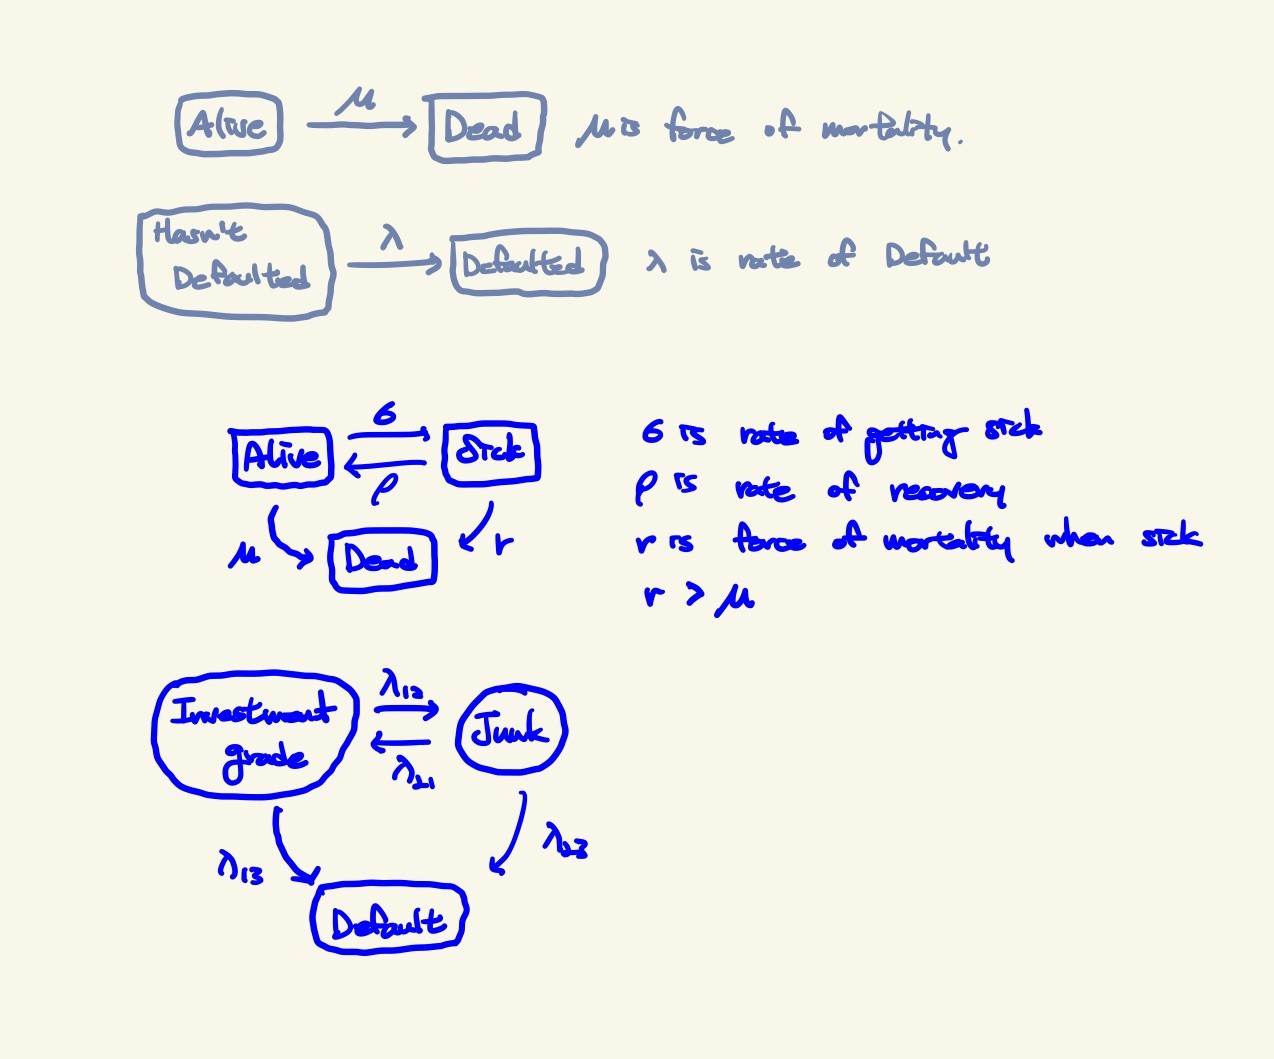 Alive
μ
Dead
μ is force of mortality.
Hasn't
Defaulted
λ
Defaulted
λ is rate of Default
Alive
σ
ρ
Sick
μ
Dead
r
σ is rate of getting sick
ρ is rate of recovery
r is force of mortality when sick
r > μ
Investment
grade
λ₁₂
λ₂₁
Junk
λ₁₃
λ₂₃
Default